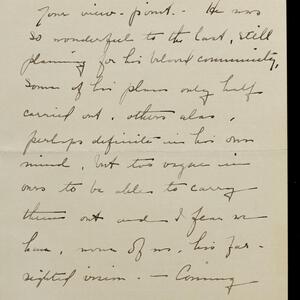 your view-point. - He was
so wonderful to the last, still
planning for his beloved community,
Some of his plans only half
carried out, others alas,
perhaps definite in his own
mind, but too vague in
ours to be able to carry
them out and I fear we
have, none of us, his far-
sighted vision. - Coming